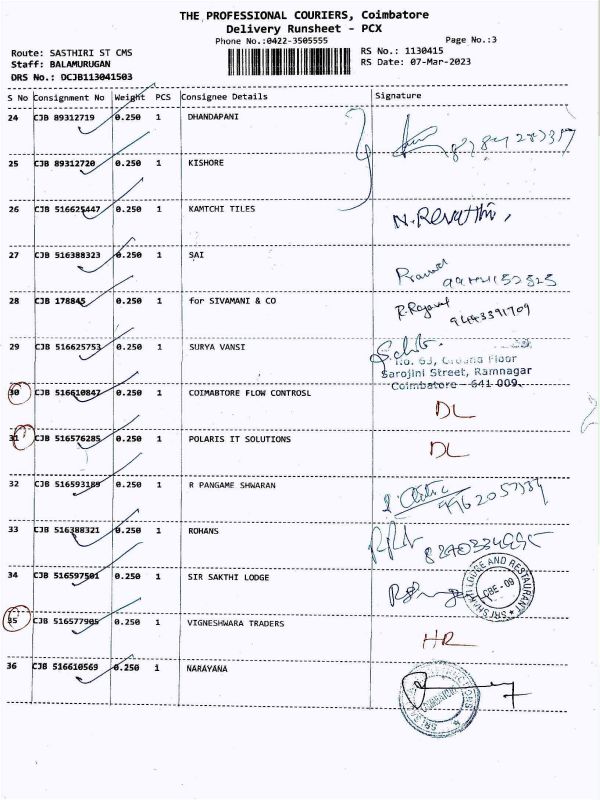 THE PROFESSIONAL COURIERS, Coimbatore
Delivery Runsheet - PCX
Phone No.:0422-3505555
Page No.:3
Route: SASTHIRI ST CMS
Staff: BALAMURUGAN
DRS No.: DCJB113041503
RS No.: 1130415
RS Date: 07-Mar-2023
S No Consignment No Weight PCS Consignee Details Signature
24 CJB 89312719 0.250 1 DHANDAPANI
25 CJB 89312720 0.250 1 KISHORE
26 CJB 516625447 0.250 1 KAMTCHI TILES N. Revathi,
27 CJB 516388323 0.250 1 SAI
28 CJB 178845 0.250 1 for SIVAMANI & CO
9443391709
29 CJB 516625753 0.250 1 SURYA VANSI
No. 63, Ground Floor
Sarojini Street, Ramnagar
Coimbatore - 641 009.
30 CJB 516610847 0.250 1 COIMABTORE FLOW CONTROSL DL
31 CJB 516576285 0.250 1 POLARIS IT SOLUTIONS DL
32 CJB 516593189 0.250 1 R PANGAME SHWARAN
33 CJB 516388321 0.250 1 ROHANS
34 CJB 516597501 0.250 1 SIR SAKTHI LODGE
SRI SHAKTI LODGE AND RESTAURANT
CBE - 09
35 CJB 516577905 0.250 1 VIGNESHWARA TRADERS HR
36 CJB 516610569 0.250 1 NARAYANA